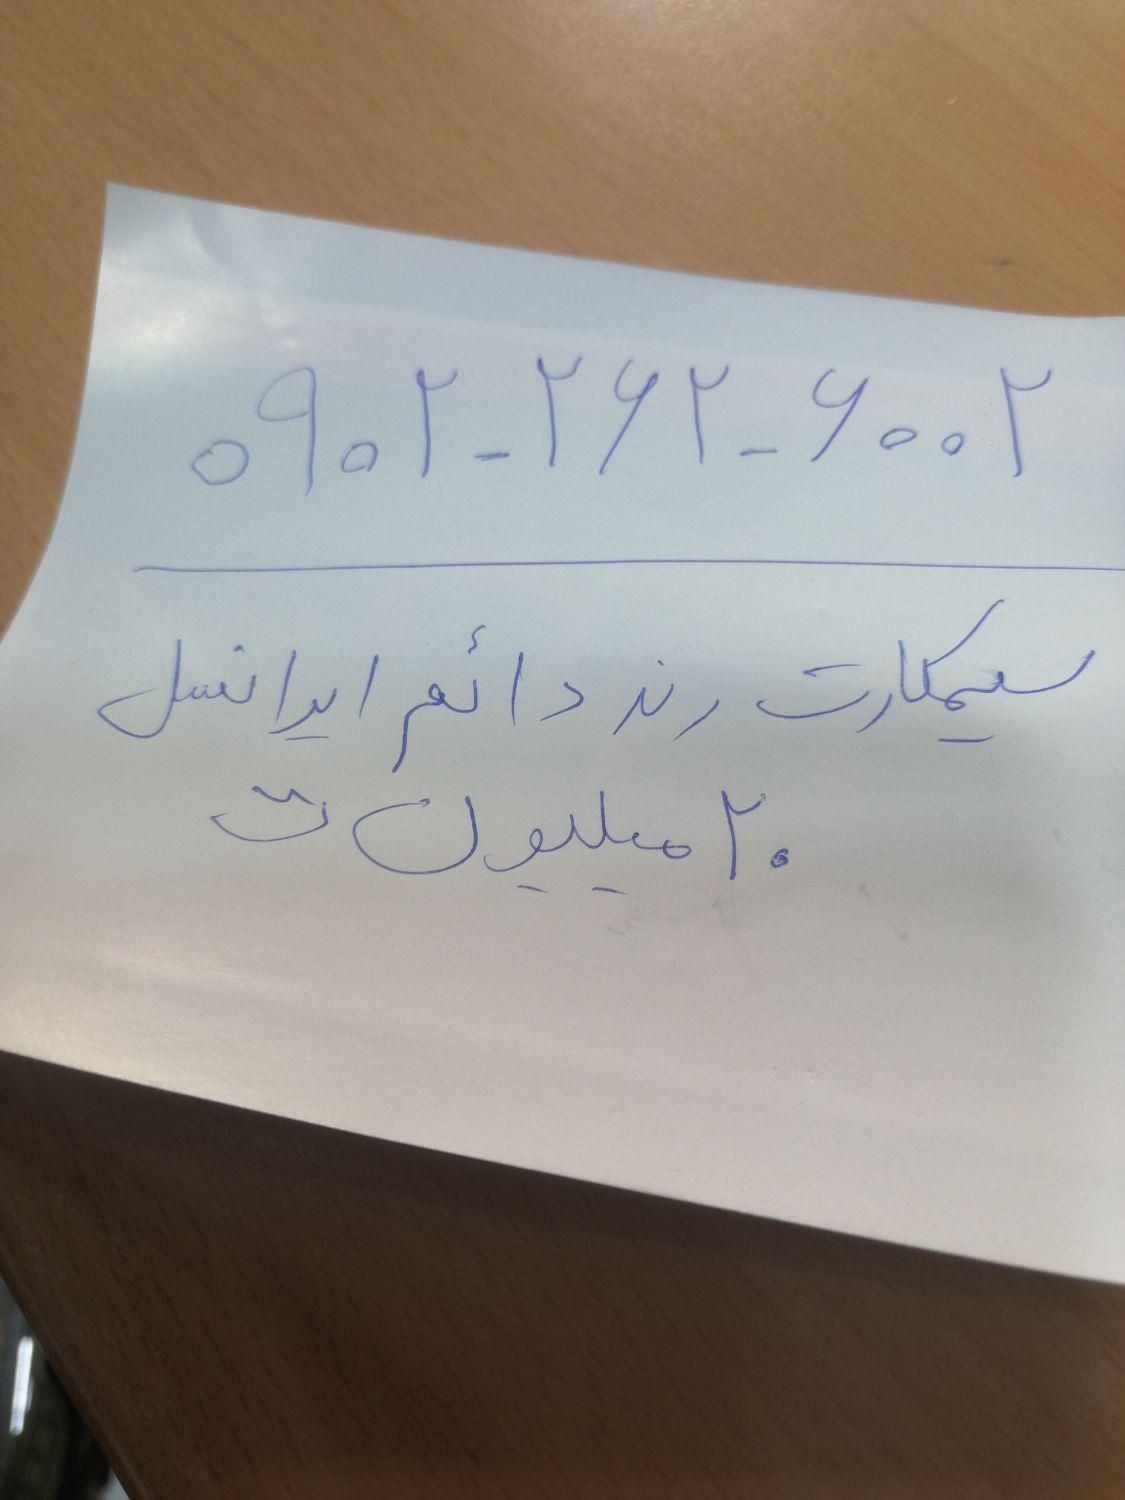 ۰۹۰۲-۲۶۲-۶۰۰۲
سیمکارت رند دائم ایرانسل
۲۰ میلیون ت